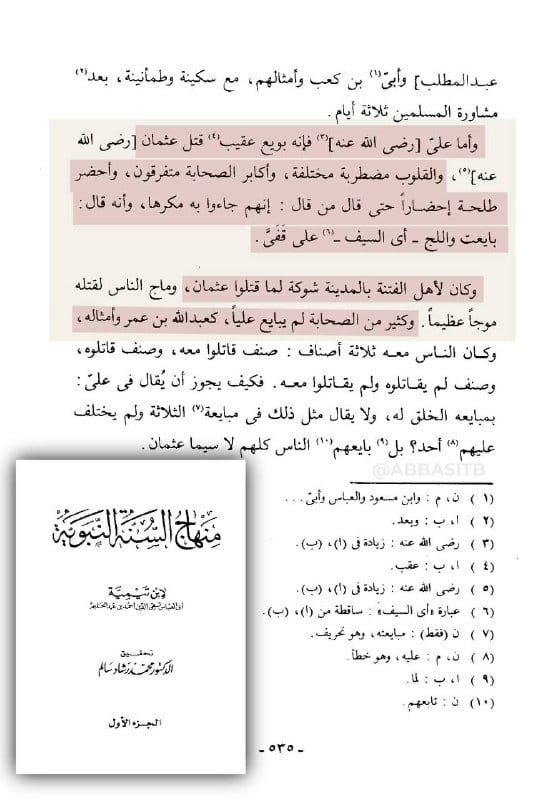 عبدالمطلب] وأبىّ(١) بن كعب وأمثالهم، مع سكينة وطمأنينة، بعد(٢)
مشاورة المسلمين ثلاثة أيام.
وأما علىّ [رضى الله عنه](٣) فإنه بويع عقيب(٤) قتل عثمان [رضى الله
عنه](٥)، والقلوب مضطربة مختلفة، وأكابر الصحابة متفرقون، وأحضر
طلحة إحضاراً حتى قال من قال : إنهم جاءوا به مكرها، وأنه قال :
بايعت واللج ـ أى السيف ـ(٦) على قَفَىَّ .
وكان لأهل الفتنة بالمدينة شوكة لما قتلوا عثمان، وماج الناس لقتله
موجاً عظيماً. وكثير من الصحابة لم يبايع علياً، كعبدالله بن عمر وأمثاله،
وكان الناس معه ثلاثة أصناف : صنف قاتلوا معه، وصنف قاتلوه،
وصنف لم يقاتلوه ولم يقاتلوا معه. فكيف يجوز أن يُقال فى علىّ :
بمبايعه الخلق له، ولا يقال مثل ذلك فى مبايعة(٧) الثلاثة ولم يختلف
عليهم(٨) أحد؟ بل(٩) بايعهم(١٠) الناس كلهم لا سيما عثمان.
@ABBASITB
(١) ن، م : وابن مسعود والعباس وأبىّ...
(٢) ا، ب : وبعد.
(٣) رضى الله عنه : زيادة فى (ا)، (ب).
(٤) ا، ب : عقب.
(٥) رضى الله عنه : زيادة فى (ا)، (ب).
(٦) عبارة «أى السيف» : ساقطة من (ا)، (ب).
(٧) ن (فقط) : مبايعته، وهو تحريف.
(٨) ن، م : عليه، وهو خطأ.
(٩) ا، ب : لما.
(١٠) ن : تابعهم.
- ٥٣٥ -
منهاج السنة النبوية
لابن تيمية
أبى العباس تقى الدين أحمد بن عبد الحليم
تحقيق
الدكتور محمد رشاد سالم
الجزء الأول